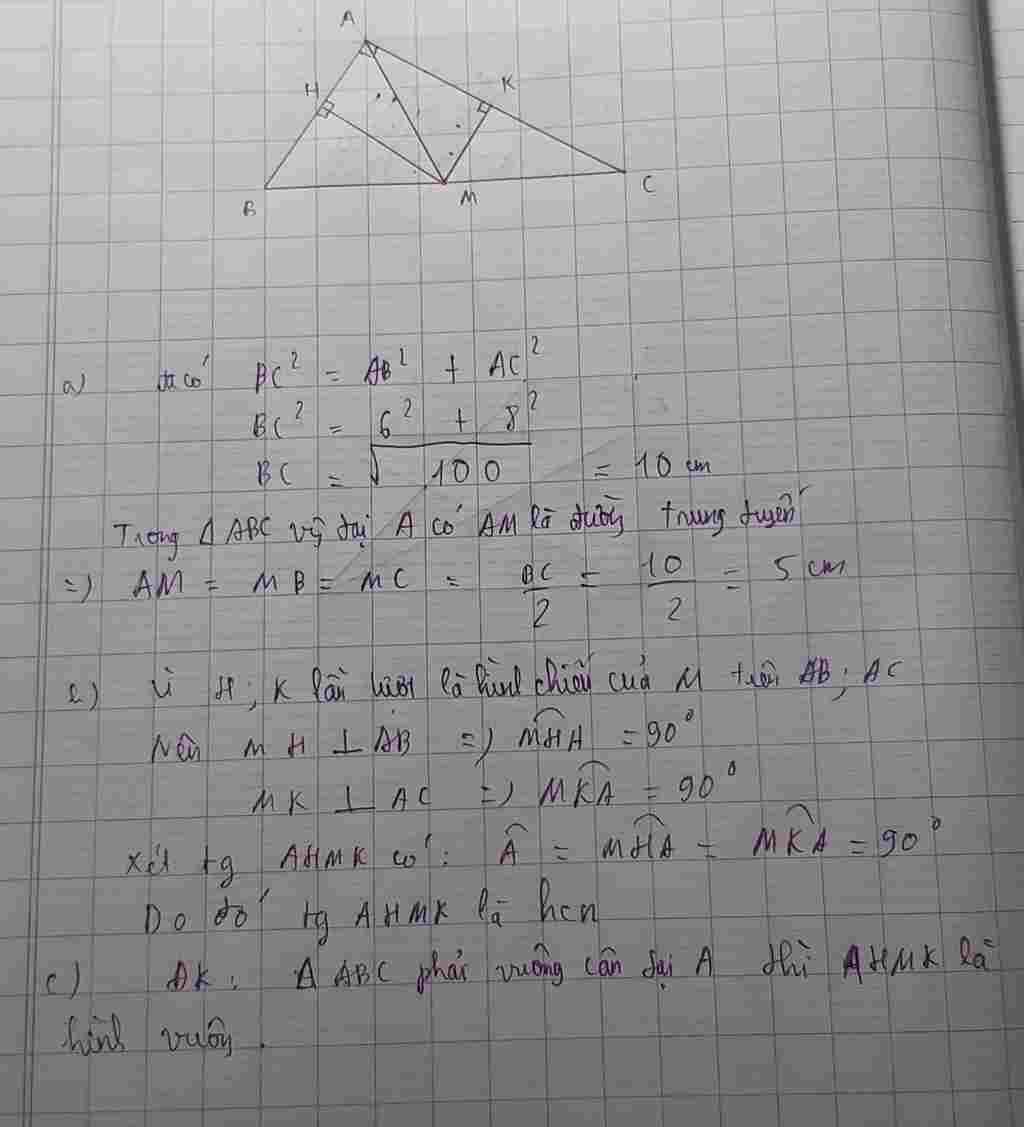 A
H
K
B
M
C
a) ta có BC² = AB² + AC²
BC² = 6² + 8²
BC = √100 = 10 cm
Trong Δ ABC vg tại A có AM là đường trung tuyến
=) AM = MB = MC = BC/2 = 10/2 = 5 cm
b) Vì H; K lần lượt là hình chiếu của M trên AB; AC
Nên MH ⊥ AB =) MHA = 90°
MK ⊥ AC =) MKA = 90°
Xét tg AHMK có: Â = MHA = MKA = 90°
Do đó tg AHMK là hcn
c) ĐK: Δ ABC phải vuông cân tại A thì AHMK là
hình vuông.